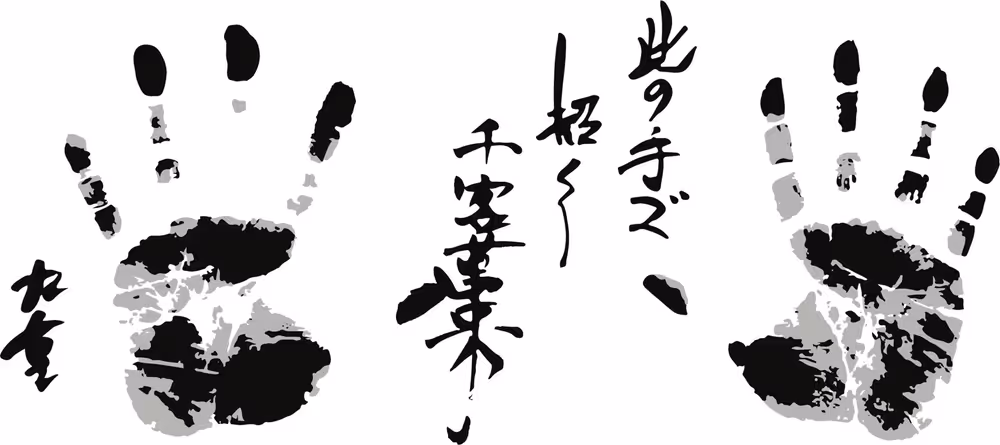 此の手で
招く
千客萬来